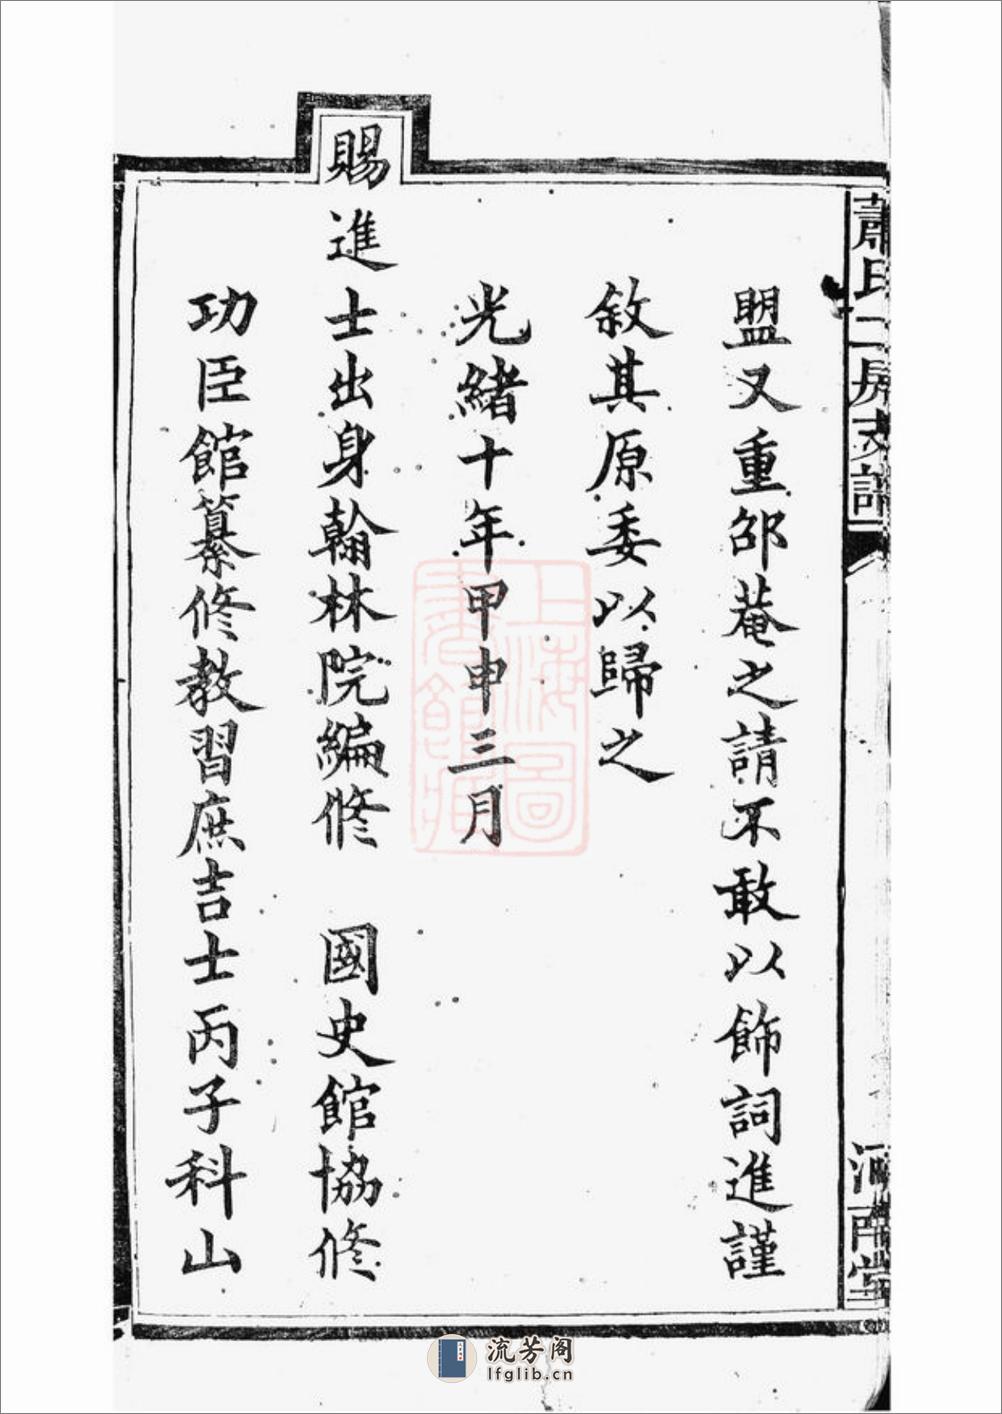 蕭氏二房支譜
河南堂
盟又重邵菴之請不敢以飾詞進謹
敘其原委以歸之
光緒十年甲申三月
賜進士出身翰林院編修 國史館協修
功臣館纂修教習庶吉士丙子科山
上海圖書館藏
流芳阁
lfglib.cn